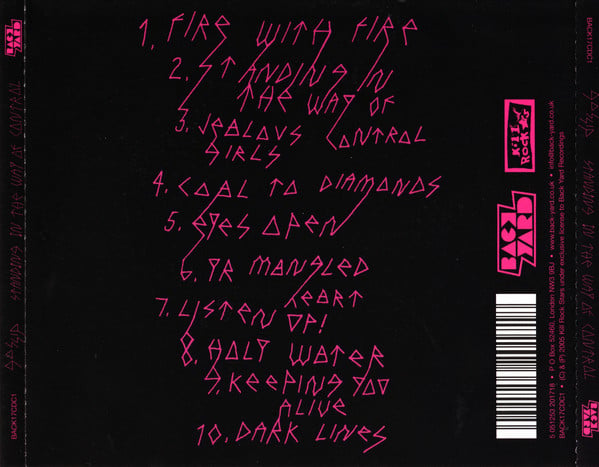 1. FIRE WITH FIRE
2. STANDING IN
THE WAY OF
CONTROL
3. JEALOUS
GIRLS
4. COAL TO DIAMONDS
5. EYES OPEN
6. YR MANGLED
HEART
7. LISTEN
UP!
8. HOLY WATER
9. KEEPING YOU
ALIVE
10. DARK LINES
BACK
YARD
GOSSIP STANDING IN THE WAY OF CONTROL
BACK17CDC1
KILL
ROCK
STARS
BACK
YARD
5 051250 201718 • P O Box 52460, London NW3 9BJ • www.back-yard.co.uk • info@back-yard.co.uk
BACK17CDC1 • (C) & (P) 2005 Kill Rock Stars under exclusive license to Back Yard Recordings
BACK17CDC1
GOSSIP STANDING IN THE WAY OF CONTROL
BACK
YARD